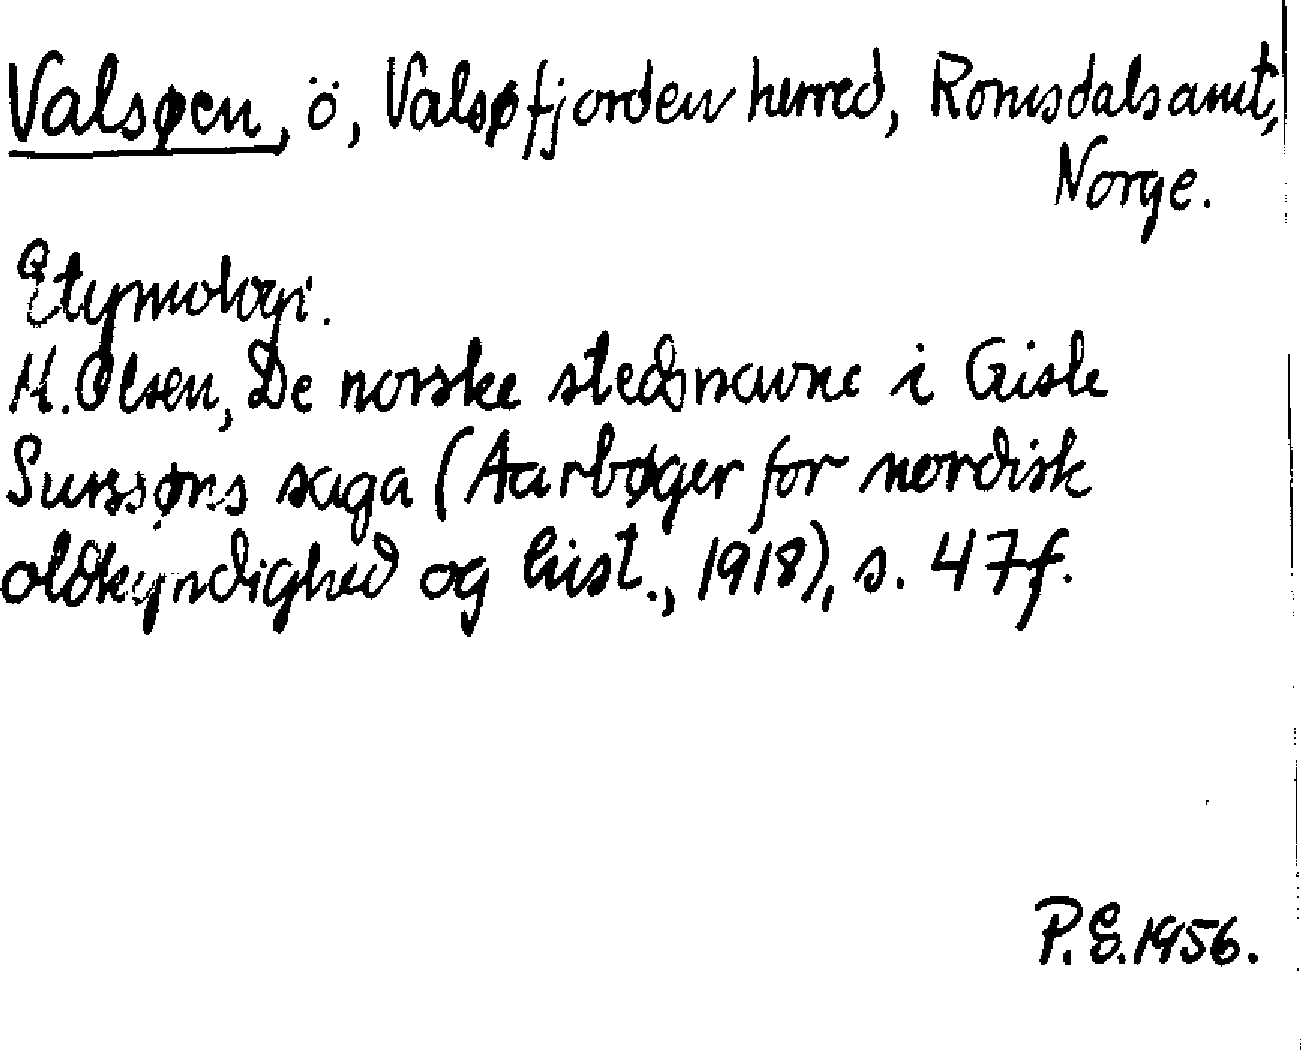 Valsøen, ö, Valsøfjorden herred, Romsdals amt,
Norge.
Etymologi.
M. Olsen, De norske stedsnavne i Gisle
Surssøns saga (Aarbøger for nordisk
oldkyndighed og hist., 1918), s. 47f.
P.E. 1956.